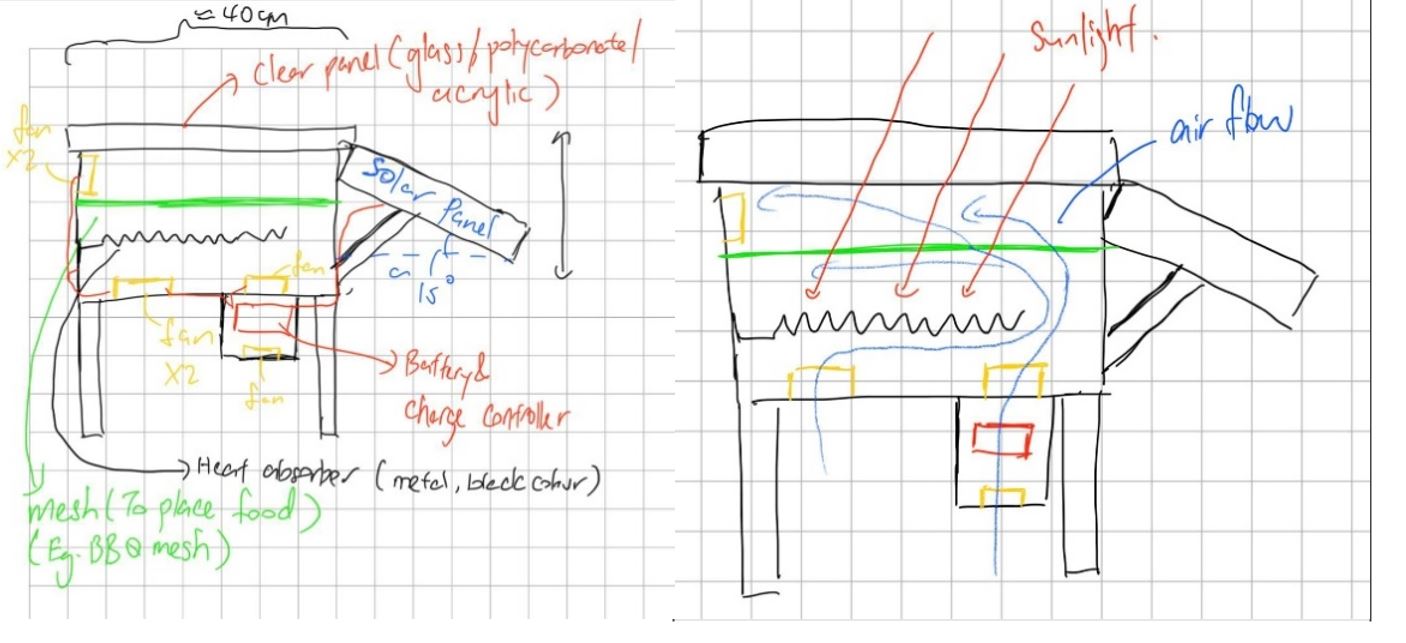 ≈ 40cm
Clear panel (glass/polycarbonate/
acrylic)
fan
x2
Solar Panel
15°
fan
fan
x2
fan
Battery &
Charge Controller
Heat absorber (metal, black colour)
mesh (To place food)
(Eg. BBQ mesh)
Sunlight.
air flow